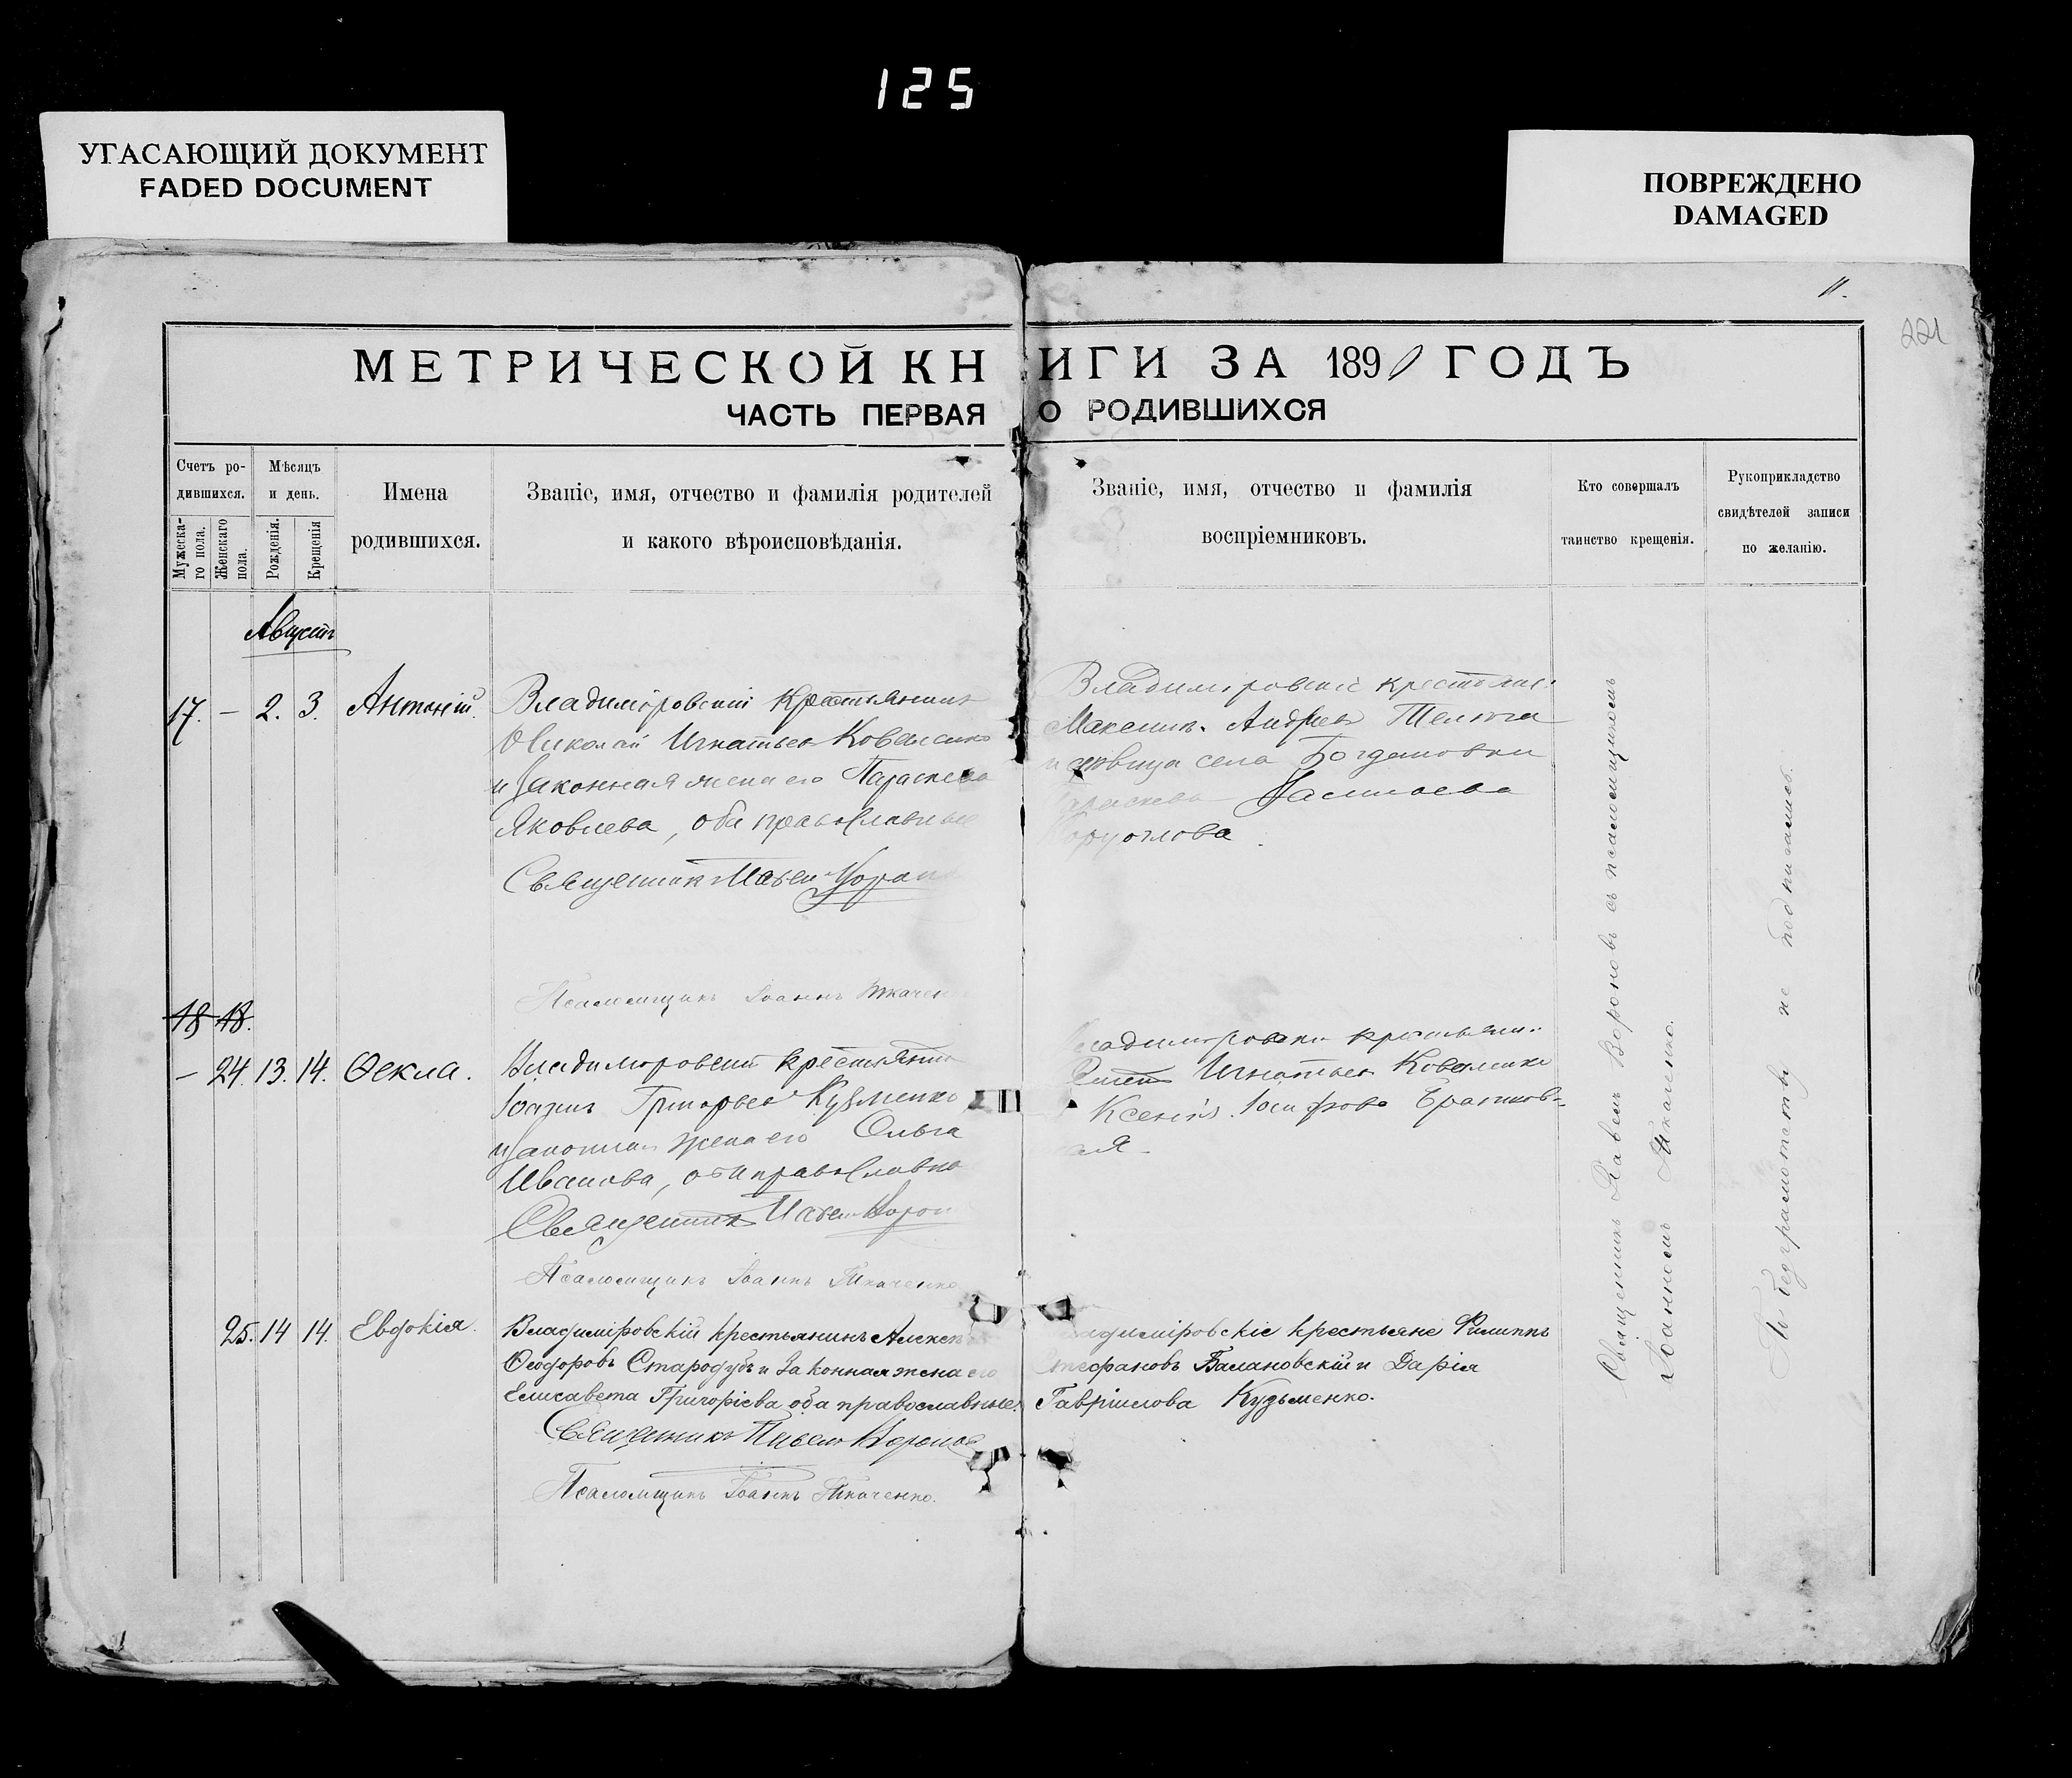 125
УГАСАЮЩИЙ ДОКУМЕНТ
FADED DOCUMENT
ПОВРЕЖДЕНО
DAMAGED
11.
221
МЕТРИЧЕСКОЙ КНИГИ ЗА 1890 ГОДЪ
ЧАСТЬ ПЕРВАЯ О РОДИВШИХСЯ
Счетъ ро-
дившихся.
Мужеска-
го пола.
Женскаго
пола.
Мѣсяцъ
и день.
Рожденія.
Крещенія
Имена
родившихся.
Званіе, имя, отчество и фамилія родителей
и какого вѣроисповѣданія.
Званіе, имя, отчество и фамилія
воспріемниковъ.
Кто совершалъ
таинство крещенія.
Рукоприкладство
свидѣтелей записи
по желанію.
Августъ
17. — 2. 3. Антоній.
Владиміровскій крестьянинъ
Николай Игнатьевъ Коваленко
и законная жена его Параскева
Яковлева, оба православные
Священникъ Павелъ
Псаломщикъ Іоаннъ
Владиміровскіе крестьяне
Максимъ Андреевъ
и девица села Богдановки
18 18.
— 24. 13. 14. Ѳекла.
Владиміровскій крестьянинъ
Іоаннъ Григорьевъ Кузменко
и законная жена его Ольга
Иванова, оба православные
Священникъ Павелъ
Псаломщикъ Іоаннъ Ткаченко
Игнатьевъ Коваленко
Ксенія Іосифова
25. 14 14. Евдокія.
Владиміровскій крестьянинъ
Ѳеодоровъ Стародубъ и законная жена его
Елисавета Григоріева оба православные.
Священникъ Павелъ Вороновъ
Псаломщикъ Іоаннъ Ткаченко.
крестьяне Филиппъ
Стефановъ Балановскій и Дарія
Гавріилова Кузьменко.
Священникъ Павелъ Вороновъ съ псаломщикомъ
Іоанномъ Ткаченко.
По безграмотству не подписались.